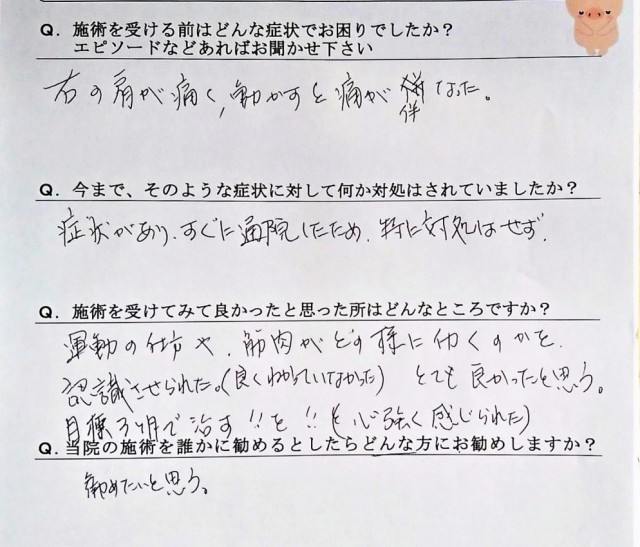 Q. 施術を受ける前はどんな症状でお困りでしたか？
エピソードなどあればお聞かせ下さい
右の肩が痛く、動かすと痛が伴なった。
Q. 今まで、そのような症状に対して何か対処はされていましたか？
症状があり、すぐに通院したため、特に対処はせず.
Q. 施術を受けてみて良かったと思った所はどんなところですか？
運動の仕方や、筋肉がどの様に働くのかを、
認識させられた。(良くわかっていなかった) とても良かったと思う。
目標3ヶ月で治す!!を!!(を心強く感じられた)
Q. 当院の施術を誰かに勧めるとしたらどんな方にお勧めしますか？
勧めたいと思う。